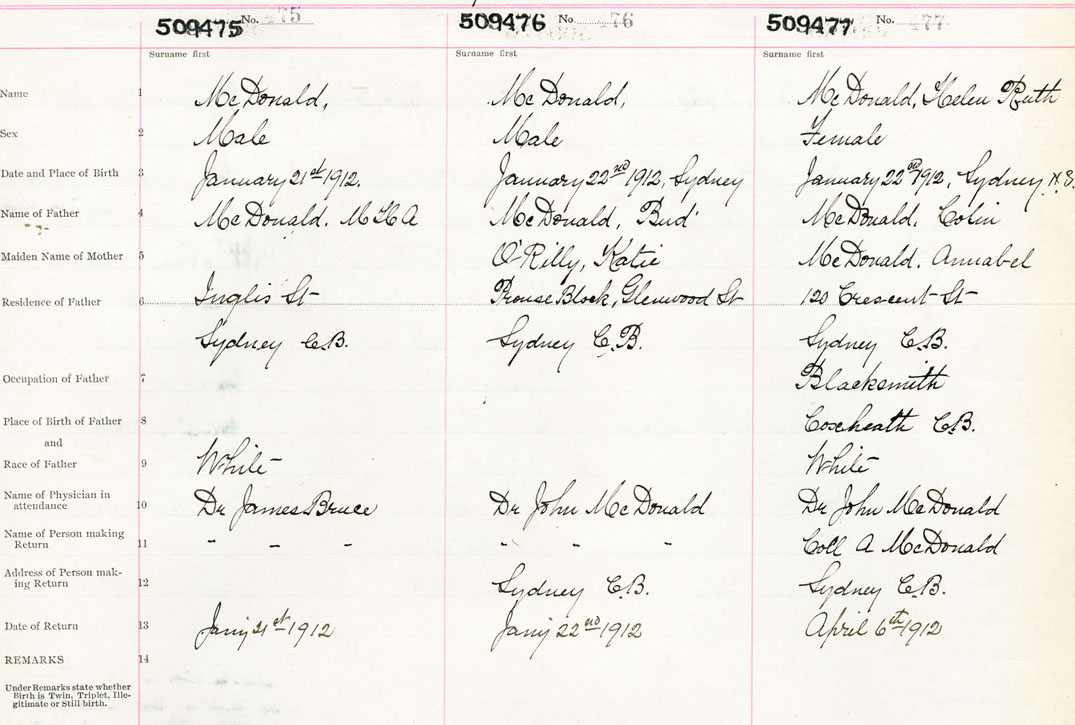 509475 No. 475 509476 No. 476 509477 No. 477
Surname first Surname first Surname first
Name 1 McDonald, McDonald, McDonald, Helen Ruth
Sex 2 Male Male Female
Date and Place of Birth 3 January 21st 1912. January 22nd 1912, Sydney January 22nd 1912, Sydney N.S.
Name of Father 4 McDonald. McDonald, Bud McDonald. Colin
Maiden Name of Mother 5 O'Rilly, Katie McDonald. Annabel
Residence of Father 6 Inglis St Prouse Block, Glenwood St 120 Crescent St
Sydney C.B. Sydney C.B. Sydney C.B.
Occupation of Father 7 Blacksmith
Place of Birth of Father 8 Coxheath C.B.
and
Race of Father 9 White White
Name of Physician in
attendance 10 Dr James Bruce Dr John McDonald Dr John McDonald
Name of Person making
Return 11 " - - " - - Coll A McDonald
Address of Person mak-
ing Return 12 Sydney C.B. Sydney C.B.
Date of Return 13 Jany 21st 1912 Jany 22nd 1912 April 6th 1912
REMARKS 14
Under Remarks state whether
Birth is Twin, Triplet, Ille-
gitimate or Still birth.